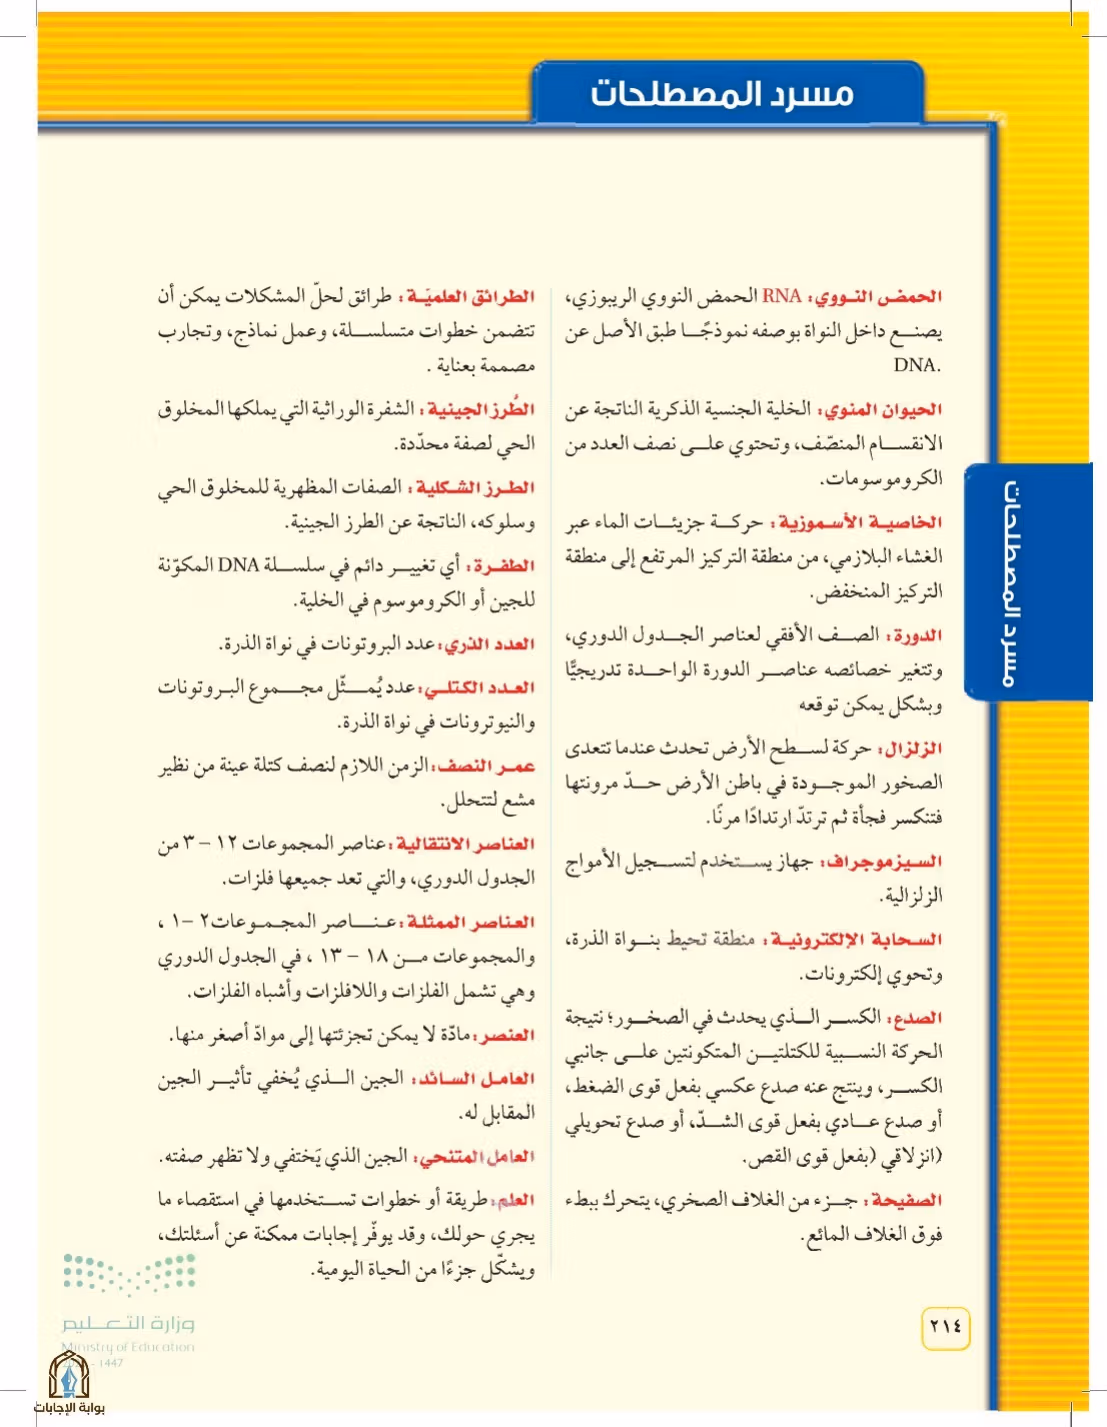 مسرد المصطلحات
الحمض النووي: RNA الحمض النووي الريبوزي،
يصنع داخل النواة بوصفه نموذجًا طبق الأصل عن
DNA.
الحيوان المنوي: الخلية الجنسية الذكرية الناتجة عن
الانقسام المنصّف، وتحتوي على نصف العدد من
الكروموسومات.
الخاصية الأسموزية: حركة جزيئات الماء عبر
الغشاء البلازمي، من منطقة التركيز المرتفع إلى منطقة
التركيز المنخفض.
الدورة: الصف الأفقي لعناصر الجدول الدوري،
وتتغير خصائصه عناصر الدورة الواحدة تدريجيًّا
وبشكل يمكن توقعه
الزلزال: حركة لسطح الأرض تحدث عندما تتعدى
الصخور الموجودة في باطن الأرض حدّ مرونتها
فتنكسر فجأة ثم ترتدّ ارتدادًا مرنًا.
السيزموجراف: جهاز يستخدم لتسجيل الأمواج
الزلزالية.
السحابة الإلكترونية: منطقة تحيط بنواة الذرة،
وتحوي إلكترونات.
الصدع: الكسر الذي يحدث في الصخور؛ نتيجة
الحركة النسبية للكتلتين المتكونتين على جانبي
الكسر، وينتج عنه صدع عكسي بفعل قوى الضغط،
أو صدع عادي بفعل قوى الشدّ، أو صدع تحويلي
(انزلاقي (بفعل قوى القص.
الصفيحة: جزء من الغلاف الصخري، يتحرك ببطء
فوق الغلاف المائع.
الطرائق العلميّة: طرائق لحلّ المشكلات يمكن أن
تتضمن خطوات متسلسلة، وعمل نماذج، وتجارب
مصممة بعناية .
الطُرز الجينية: الشفرة الوراثية التي يملكها المخلوق
الحي لصفة محدّدة.
الطرز الشكلية: الصفات المظهرية للمخلوق الحي
وسلوكه، الناتجة عن الطرز الجينية.
الطفرة: أي تغيير دائم في سلسلة DNA المكوّنة
للجين أو الكروموسوم في الخلية.
العدد الذري: عدد البروتونات في نواة الذرة.
العدد الكتلي: عدد يُمثّل مجموع البروتونات
والنيوترونات في نواة الذرة.
عمر النصف: الزمن اللازم لنصف كتلة عينة من نظير
مشع لتتحلل.
العناصر الانتقالية: عناصر المجموعات ١٢ – ٣ من
الجدول الدوري، والتي تعد جميعها فلزات.
العناصر الممثلة: عناصر المجموعات ٢ – ١ ،
والمجموعات من ١٨ – ١٣ ، في الجدول الدوري
وهي تشمل الفلزات واللافلزات وأشباه الفلزات.
العنصر: مادّة لا يمكن تجزئتها إلى موادّ أصغر منها.
العامل السائد: الجين الذي يُخفي تأثير الجين
المقابل له.
العامل المتنحي: الجين الذي يَختفي ولا تظهر صفته.
العلم: طريقة أو خطوات تستخدمها في استقصاء ما
يجري حولك، وقد يوفّر إجابات ممكنة عن أسئلتك،
ويشكّل جزءًا من الحياة اليومية.
مسرد المصطلحات
٢١٤
وزارة التعليم
Ministry of Education
- 1447
بوابة الإجابات